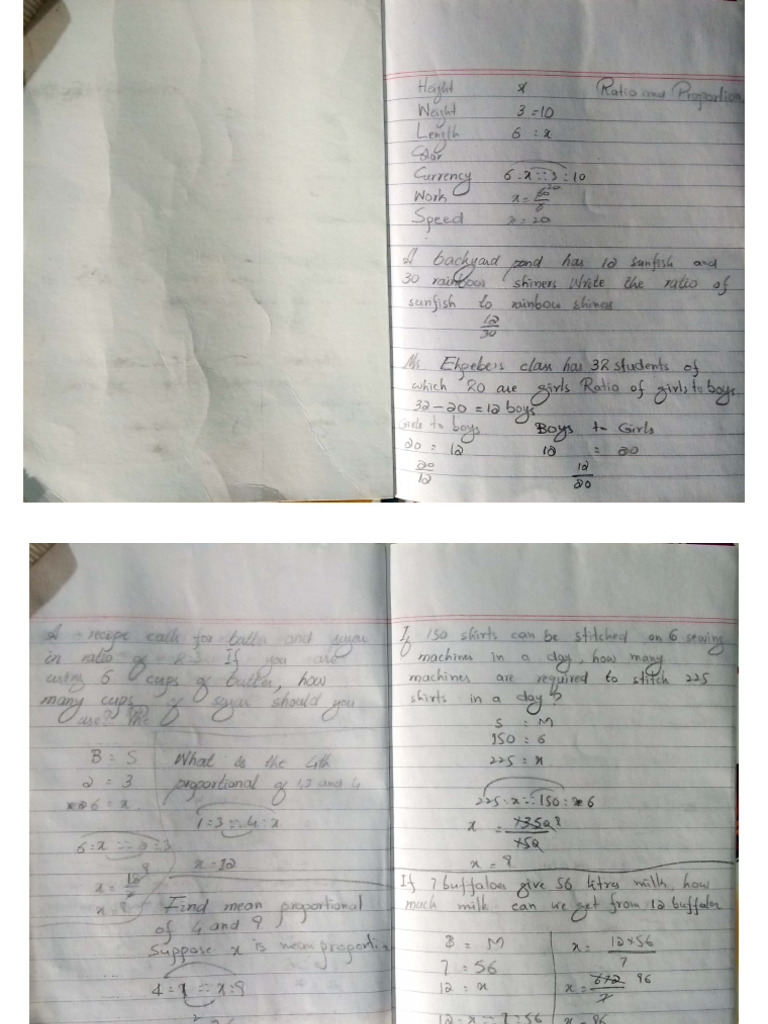 Ratio and Proportion
Height x
Weight 3 = 10
Length 6 : x
Color
Currency 6 : x :: 3 : 10
Work x = 60 20
3
Speed x = 20
A backyard pond has 12 sunfish and
30 rainbow shiners Write the ratio of
sunfish to rainbow shiners
12
30
Ms class has 32 students of
which 20 are girls Ratio of girls to boys
32 - 20 = 12 boys
Girls to boys Boys to Girls
20 = 12 12 = 20
20 12
12 20
A recipe calls for butter and sugar
in ratio of 2 If you are
using 6 cups of butter, how
many cups of sugar should you
use?
B = S
2 = 3
6 = x
6 : x :: 2 : 3
x = 18
What is the 4th
proportional of 1,3 and 4
1 = 3 :: 4 : x
x = 12
Find mean proportional
of 4 and 9
Suppose x is mean proportion
If 150 shirts can be stitched on 6 sewing
machines in a day, how many
machines are required to stitch 225
shirts in a day?
S : M
150 : 6
225 : x
225 : x :: 150 : 6
x = 1350
150
If 7 buffaloes give 56 litres milk, how
much milk can we get from 12 buffaloes
B = M
7 = 56
12 = x
12 : x :: 7 : 56
x = 12 × 56
7
x = 672 96
7
x = 96